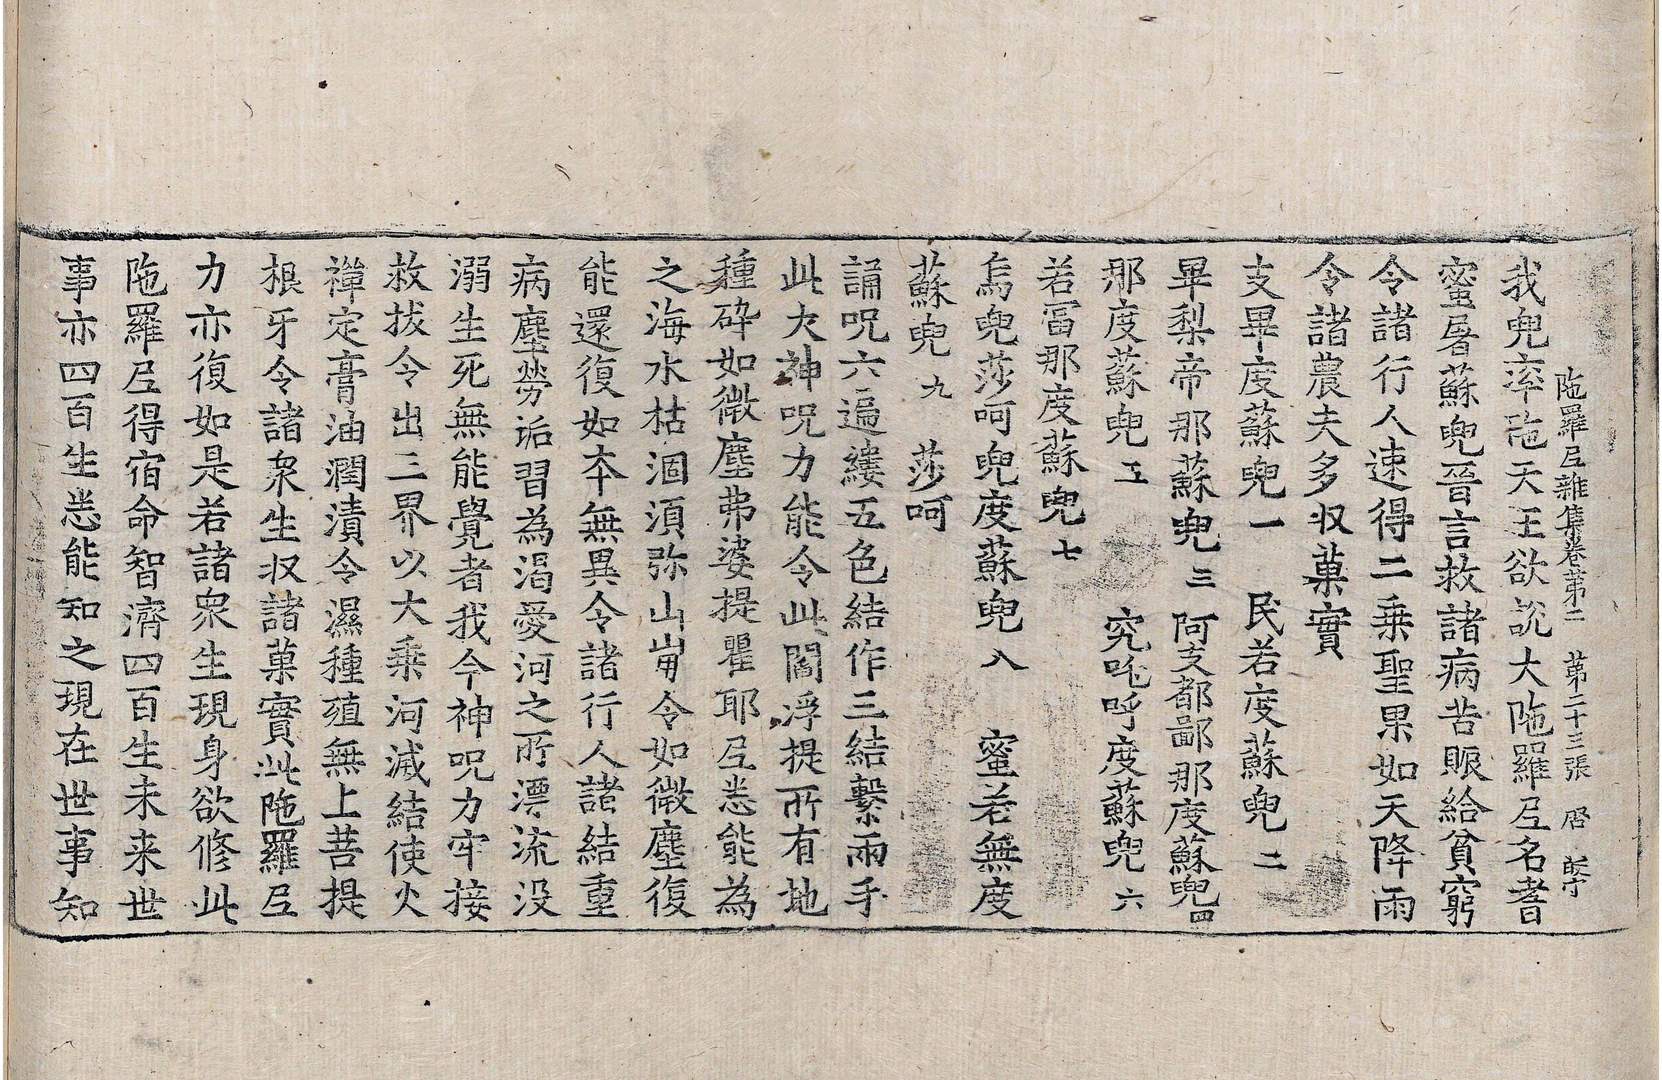 陁羅尼雜集卷第二 第二十三張 㞐
我兜率陁天王欲說大陁羅尼名耆
蜜屠蘇兜晉言救諸病苦賑給貧窮
令諸行人速得二乘聖果如天降雨
令諸農夫多収菓實
支畢度蘇兜一 民若度蘇兜二
畢梨帝那蘇兜三 阿支都鄙那度蘇兜四
那度蘇兜五 究吒呼度蘇兜六
若冨那度蘇兜七
烏兜莎呵兜度蘇兜八 蜜若無度
蘇兜九 莎呵
誦呪六遍縷五色結作三結繫兩手
此大神呪力能令此閻浮提所有地
種碎如微塵弗婆提瞿耶尼悉能為
之海水枯涸湏弥山崩令如微塵復
能還復如本無異令諸行人諸結重
病塵勞垢習為渴愛河之所漂流没
溺生死無能覺者我今神呪力牢接
救拔令出三界以大乘河滅結使火
禪定膏油潤漬令濕種殖無上菩提
根牙令諸衆生収諸菓實此陁羅尼
力亦復如是若諸衆生現身欲修此
陁羅尼得宿命智濟四百生未来世
事亦四百生悉能知之現在世事知